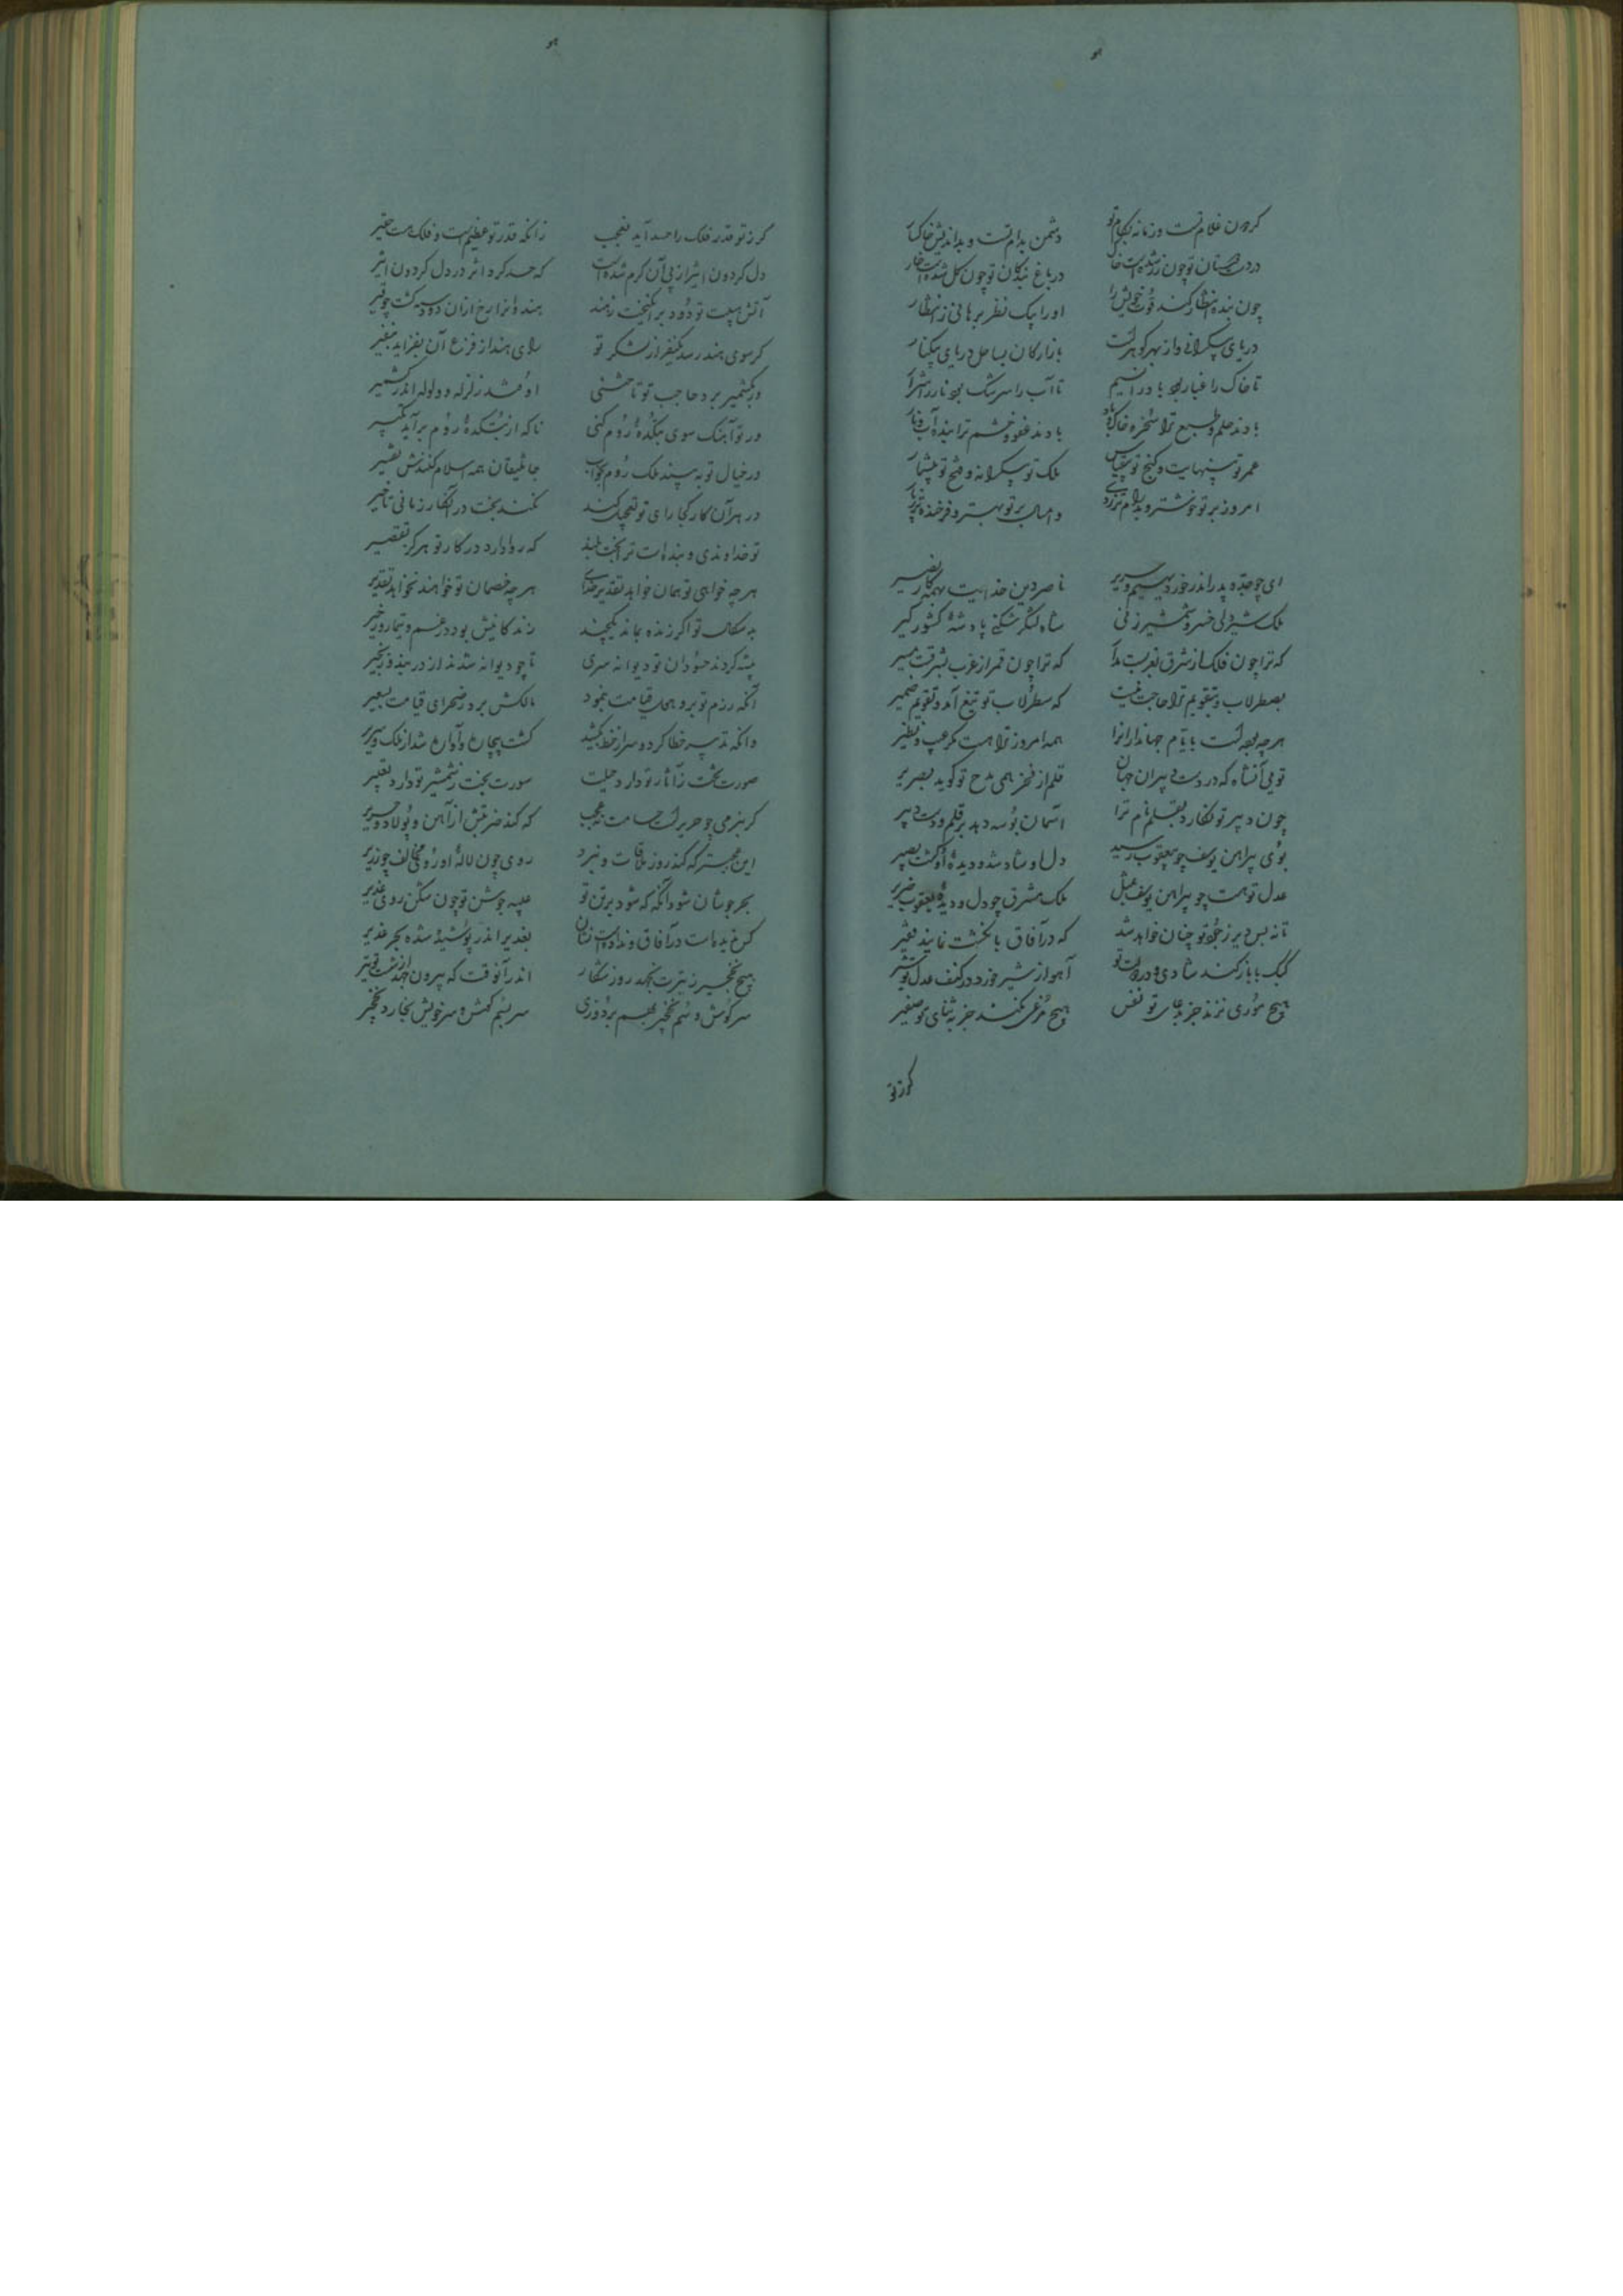 هو
گردون غلام تست و زمانه بکام تو دشمن بدام تست و بداندیش خاکسار
در دست دوستان تو چون زر شده است خاک در باغ بندگان تو چون گل شده است خار
چون بنده انتظار کند قوت خویش را او را بیک نظر برهانی ز انتظار
دریای بیکرانی و از بهر گوهرست بازارگان بساحل دریای بیکنار
تا خاک را غبار بود باد را نسیم تا آب را سرشک بود نار را شرار
بادند حلم و طبع ترا سخره خاک و باد بادند عفو و خشم ترا بنده آب و نار
عمر تو بینهایت و گنج تو بیقیاس ملک تو بیکرانه و فتح تو بیشمار
امروز بر تو خوشتر و پدرام تر ز دی و امسال بر تو بهتر و فرخنده تر ز پار
ای چو جد و پدر اندر خور دیهیم و سریر ناصر دین خدائیت بهمه کار نصیر
ملک شیر دلی خسرو شمشیر زنی شاه لشگر شکنی پادشه کشور گیر
که ترا چون فلک از شرق بغربست مدار که ترا چون قمر از غرب بشرقست مسیر
بصطرلاب و بتقویم ترا حاجت نیست که سطرلاب تو تیغ آمد و تقویم ضمیر
هر چه بوده است بایام جهانداران را همه امروز ترا هست مگر عیب و نظیر
توئی آنشاه که در دست دبیران جهان قلم از فخر همی مدح تو گوید بصریر
چون دبیر تو نگارد بقلم نام ترا آسمان بوسه دهد بر قلم و دست دبیر
بوی پیراهن یوسف چو بیعقوب رسید دل او شاد شد و دیده او گشت بصیر
عدل تو هست چو پیراهن یوسف بمثل ملک مشرق چو دل و دیده یعقوب ضریر
تا نه بس دیر ز جود تو چنان خواهد شد که در آفاق بانگشت نمایند فقیر
کبک با باز کند شادی در دولت تو آهو از شیر خورد در کنف عدل تو شیر
هیچ موری نزند جز بدعای تو نفس هیچ مرغی نکند جز بثنای تو صفیر
گر ز تو
هو
گر ز تو قدر فلک را حسد آید نعجب زانکه قدر تو عظیم است و فلک هست حقیر
دل گردون اثیر از پی آن گرم شده است که حسد کرد اثر در دل گردون اثیر
آتش هیبت تو دود برانگیخت ز هند هندوانرا رخ از آن دود سیه گشت چو قیر
گر سوی هند رسد یکنفر از لشکر تو رای هند از فزع آن بفزاید بنفیر
ور بکشمیر برد حاجب تو تاختنی اوفتد زلزله و ولوله اندر کشمیر
ور تو آهنگ سوی بتکده روم کنی ناگه از بتکده روم برآید تکبیر
ور خیال تو ببیند ملک روم بخواب جاثلیقان همه اسلام کنندش تعبیر
در هر آن کار کجا رای تو تعجیل کند نکند بخت در آنکار زمانی تاخیر
تو خداوندی و بنده است ترا بخت بلند که روا دارد در کار تو هرگز تقصیر
هر چه خواهی تو همان خواهد تقدیر خدای هر چه خصمان تو خواهند نخواهد تقدیر
بدسگال تو اگر زنده بماند یکچند زندگانیش بود در غم و تیمار و زحیر
پیشه کردند حسودان تو دیوانه سری تا چو دیوانه شدند از در بند و زنجیر
آنکه رزم تو برو هول قیامت بنمود مالکش برد ز صحرای قیامت بسعیر
وانکه تدبیر خطا کرد و سر از خط بکشید گشت بیجان و آواره شد از ملک و سریر
صورت بخت ز آثار تو دارد حیلت سورت بخت ز شمشیر تو دارد تفسیر
گر بنرمی چو حریرست حسامت نه عجب که کند ضربتش از آهن و پولاد حریر
این عجبتر که کند روز ملاقات و نبرد روی چون لاله او روی مخالف چو زریر
بحر جوشان شود آنگه که شود برتن تو عیبه جوشن تو چون شکن روی غدیر
کس ندیده است در آفاق و نداده است نشان بغدیر اندر پوشیده شده بحر غدیر
هیچ نخجیر ز تیرت نجهد روز شکار اندر آنوقت که بیرون جهد از شست تو تیر
سر گوش و سم نخجیر بهم بردوزی سر بسم گوش و سر خویش بخارد نخجیر